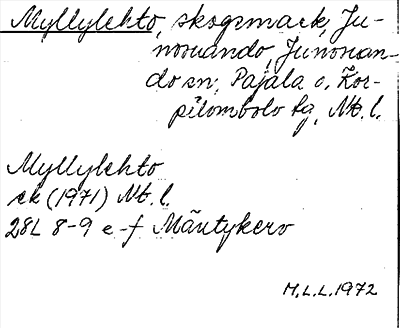 Myllylehto, skogsmark, Ju-
nosuando, Junosuan-
do sn, Pajala o. Kor-
pilombolo tg, Nb. l.
Myllylehto
ek (1971) Nb. l.
28L 8-9 e-f Mäntykero
M.L.L. 1972